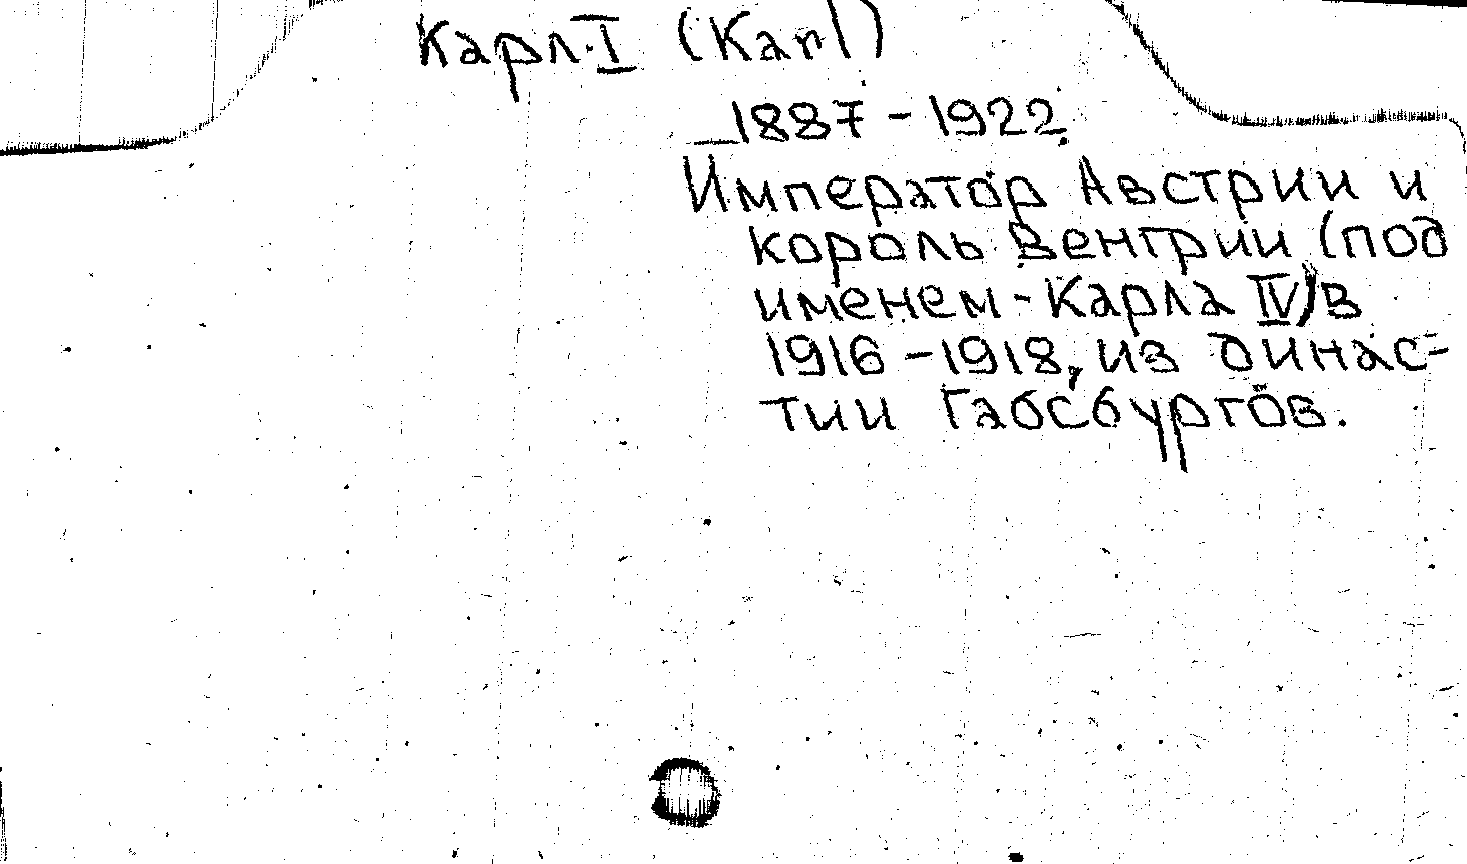 Карл I (Karl)
1887-1922
Император Австрии и
король Венгрии (под
именем - Карла IV) в
1916-1918, из динас-
тии Габсбургов.